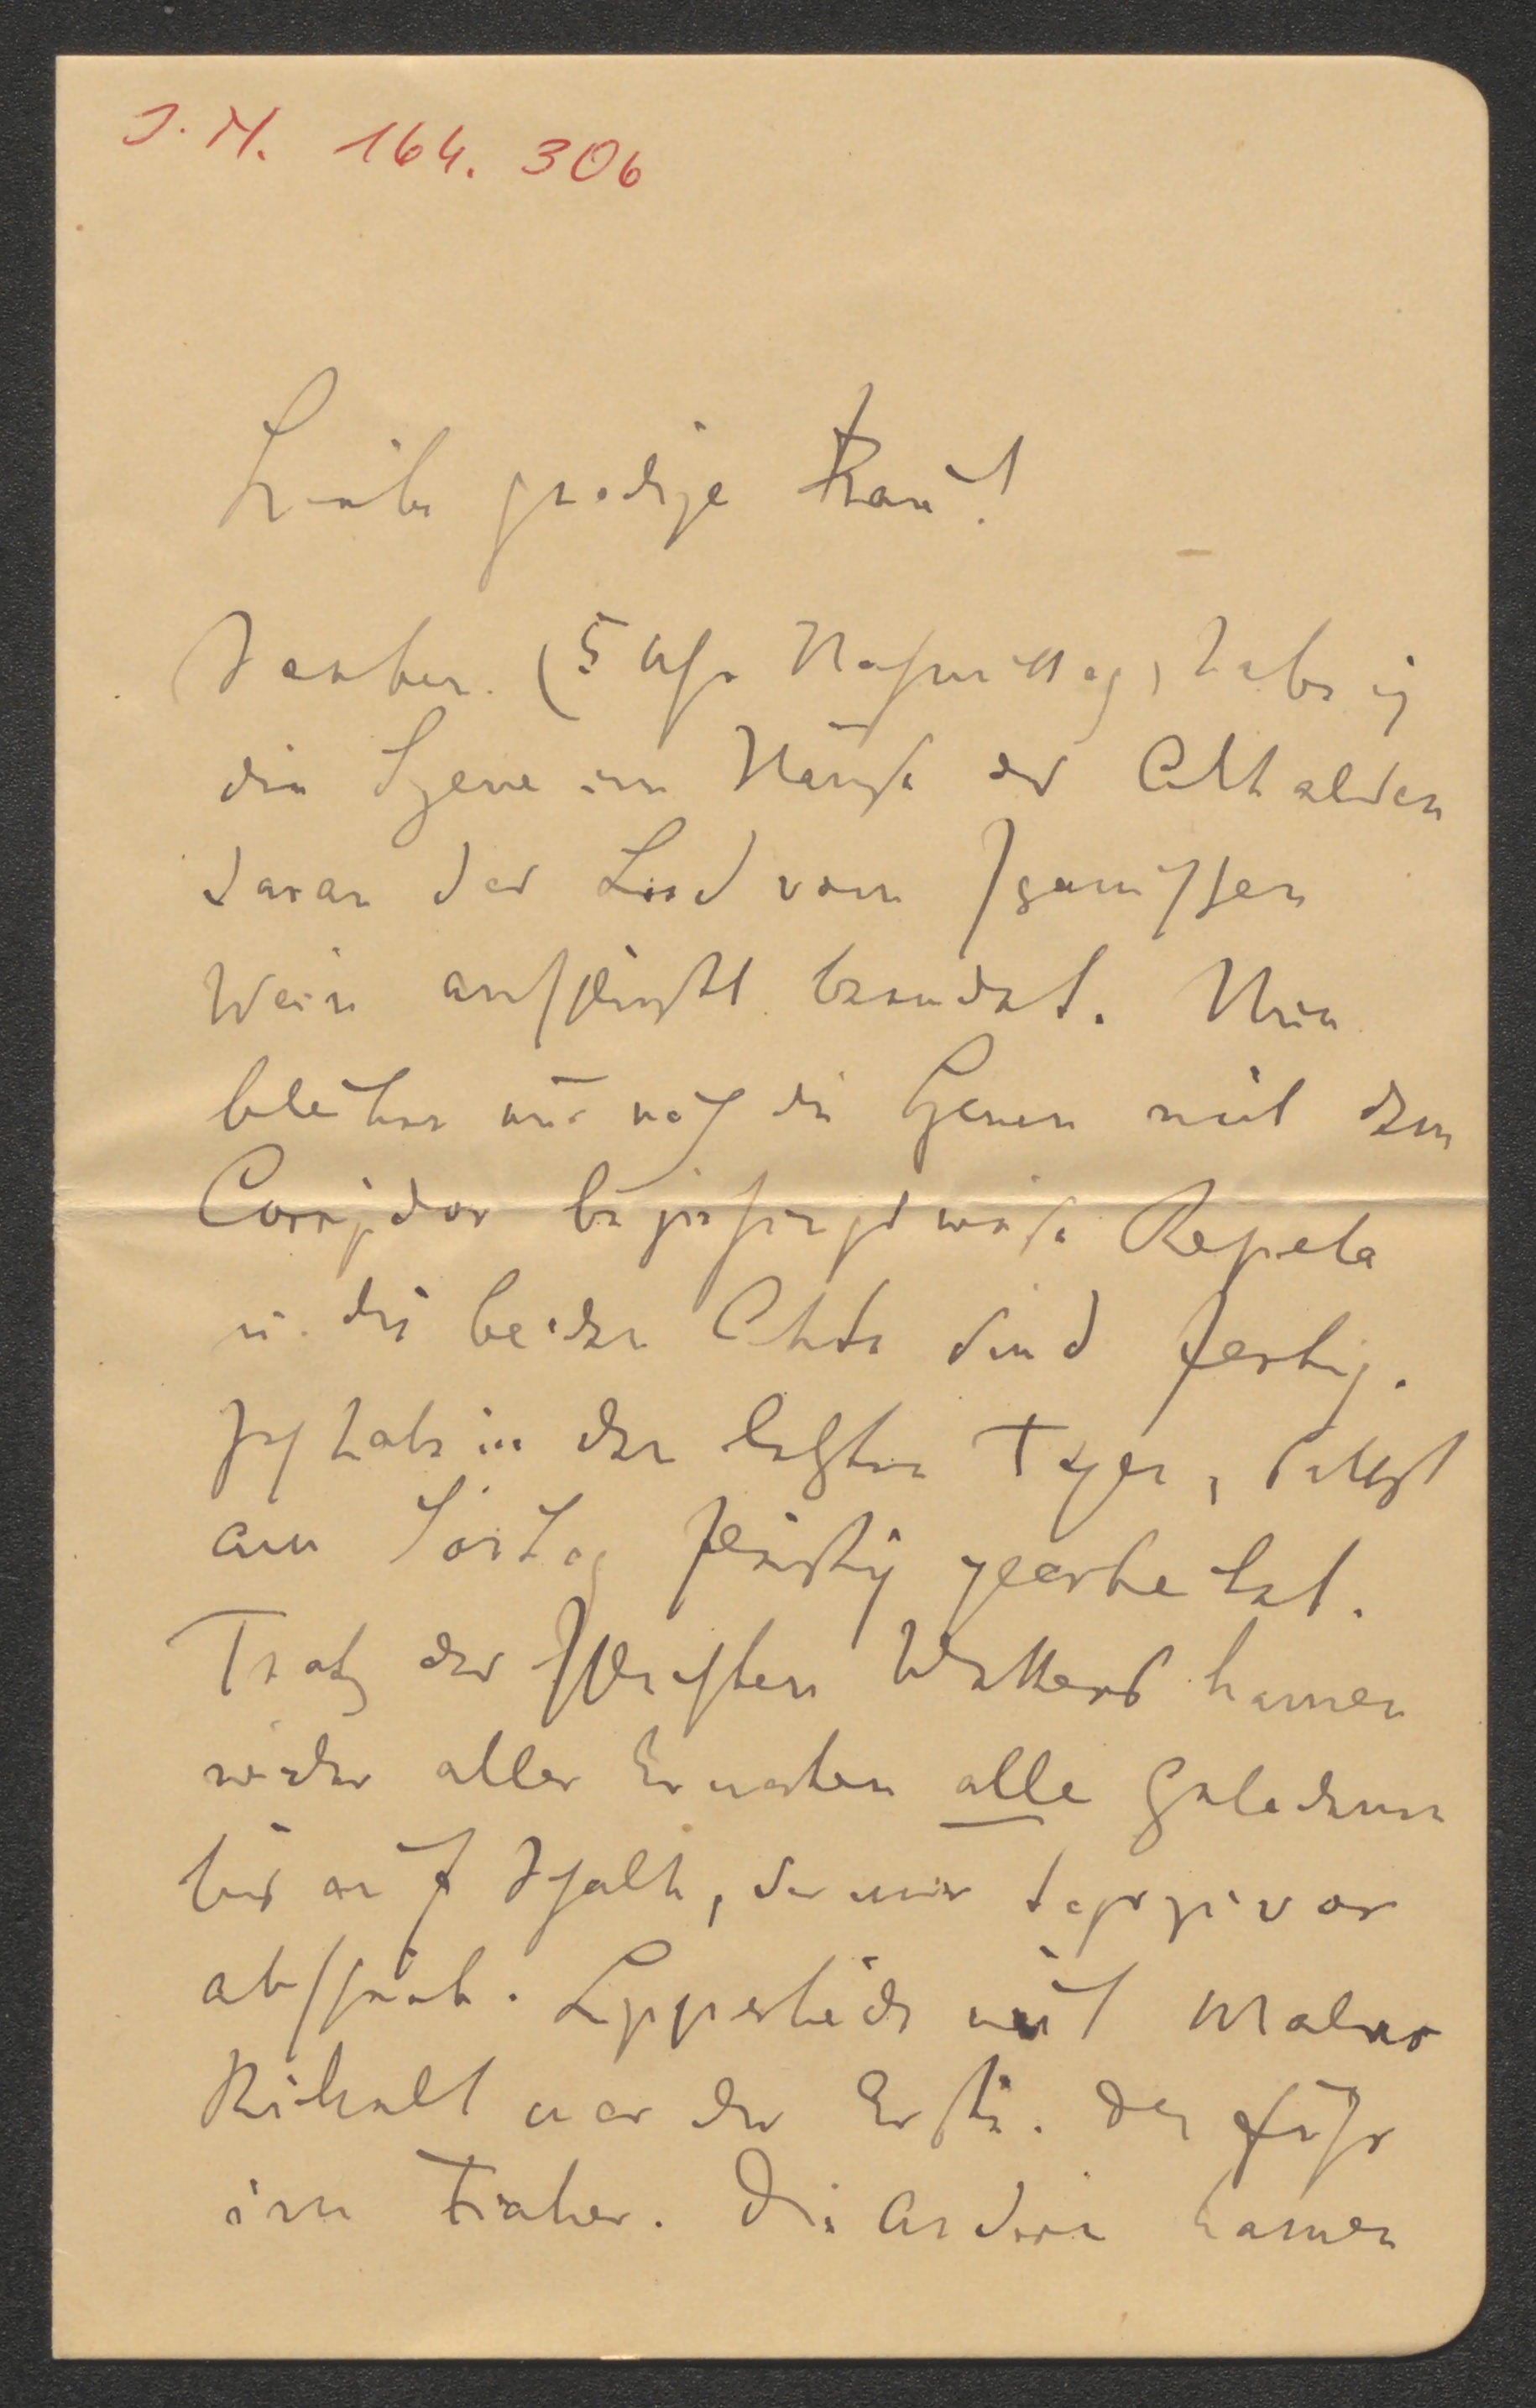 J. N. 164. 306
Liebe gnädige Frau!
Soeben (5 Uhr Nachmittag) habe ich
die Szene im Hause des Alkalden
daran das Lied vom spanischen
Wein anschließt beendet. Nun
bleiben nur noch die Szenen mit dem
Corregidor beziehungsweise Repela
u. die beiden Akte sind fertig.
Ich habe in den letzten Tagen, selbst
am Sonntag fleißig gearbeitet.
Trotz des schlechten Wetters kamen
wider aller Erwarten alle Geladenen
bis auf Schalk, der mir tagszuvor
abschrieb. Lipperheide mit Maler
war der Erste. Der fuhr
im Fiaker. Die Andern kamen